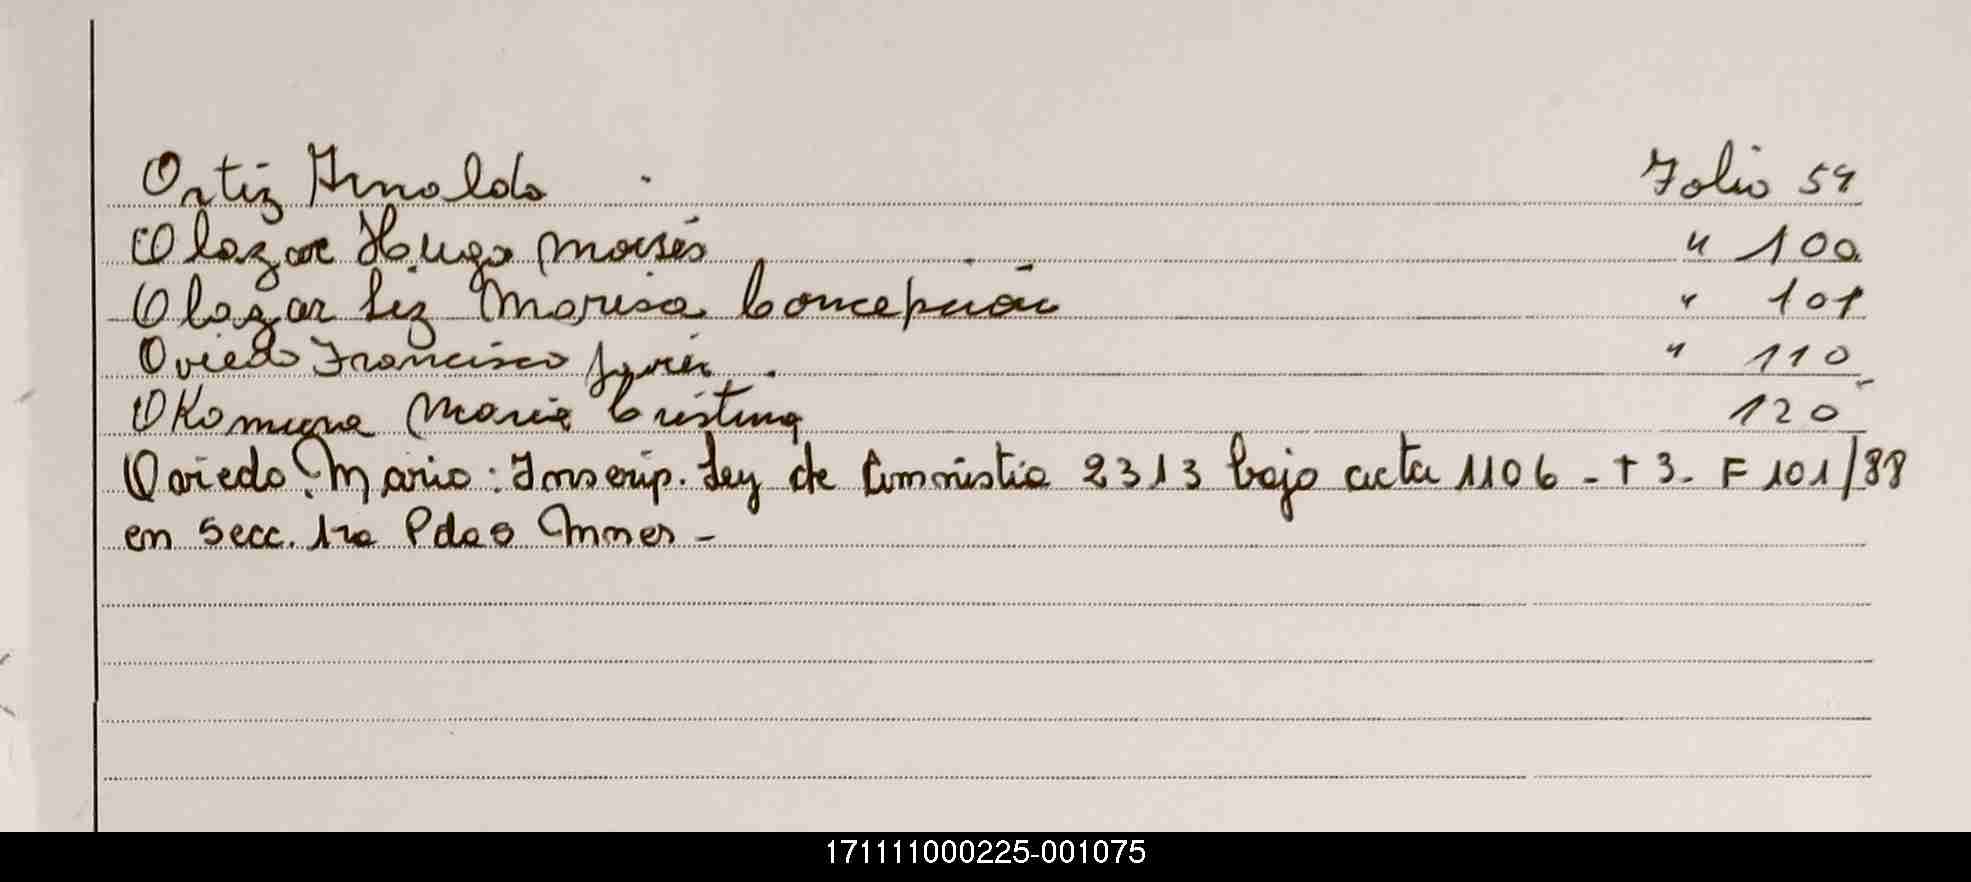 Ortiz Arnoldo Folio 59
Olazar Hugo Moisés " 100
Olazar Liz Marisa Concepción " 101
Oviedo Francisco Javier " 110
Okomura Maria Cristina 120
Oviedo Mario: Inscrip. Ley de Amnistia 2313 bajo acta 1106 - t 3 - F 101/88
en Secc. 1ra
171111000225-001075